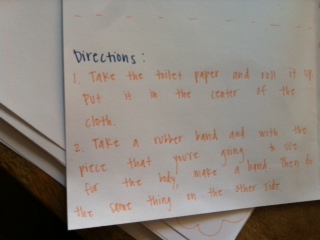 Directions:
1. Take the toilet paper and roll it up
Put it in the center of the
cloth.
2. Take a rubber band and with the
piece that you're going to use
for the body, make a hand. Then do
the same thing on the other side.